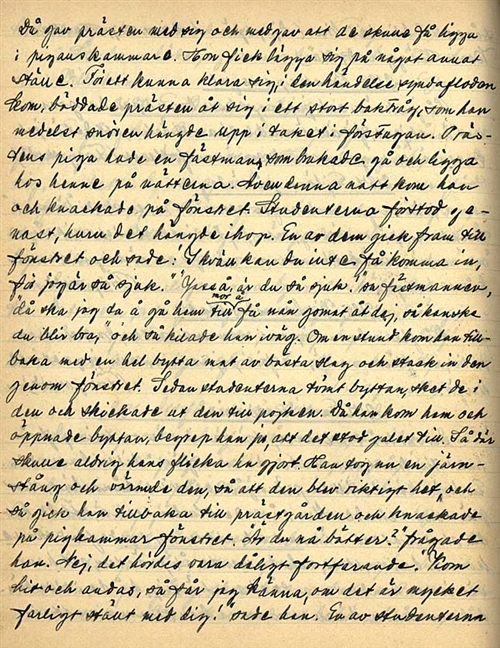 Då gav prästen med sig och medgav att de skulle få ligga
i pigans kammare. Hon fick lägga sig på något annat
ställe. För att kunna klara sig, i den händelse syndafloden
kom, bäddade prästen åt sig i ett stort baktråg, som han
medelst snören hängde upp i taket i förstugan. Präs-
tens piga hade en fästman, som brukade gå och ligga
hos henne på nätterna. Även denna natt kom han
och knackade på fönstret. Studenterna förstod ge-
nast, huru det hängde ihop. En av dem gick fram till
fönstret och sade: "I kväll kan du inte få komma in,
för jag är så sjuk." "Jasså, är du så sjuk," sa fästmannen,
"då ska jag ta å gå hem till mor å få nån gomat åt dej, så kanske
du blir bra," och så kilade han iväg. Om en stund kom han till-
baka med en hel bytta mat av bästa slag och stack in den
genom fönstret. Sedan studenterna tömt byttan, sket de i
den och skickade ut den till pojken. Då han kom hem och
öppnade byttan, begrep han ju att det stod galet till. Så där
skulle aldrig hans flicka ha gjort. Han tog nu en järn-
stång och värmde den, så att den blev riktigt het, och
så gick han tillbaka till prästgården och knackade
på pigkammarfönstret. "Är du nå bättre?" frågade
han. Nej, det hördes vara dåligt fortfarande. "Kom
hit och andas, så får jag känna, om det är mycket
farligt ställt med dig!" sade han. En av studenterna